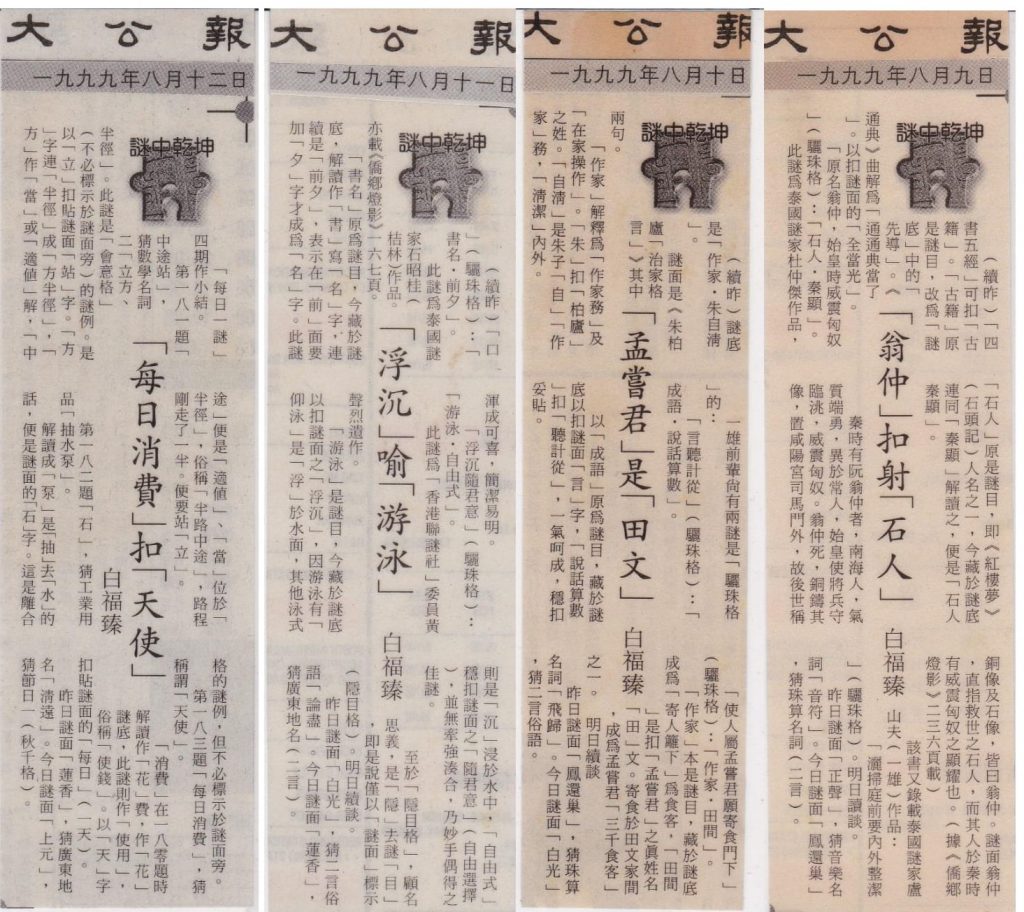 大公報
一九九九年八月九日
謎中乾坤
「翁仲」扣射「石人」
白福臻
（續昨）「四
書五經」可扣「古
籍」。「古籍」原
是謎目，改爲「謎
底」中的「
先導」。《
通典》曲解爲「通通典當了
」。以扣謎面的「全當光」。
「原名翁仲，始皇時威震匈奴
」（驪珠格）：「石人，秦顯」。
此謎爲泰國謎家杜仲傑作品，
「石人」原是謎目，即《紅樓夢》
（石頭記）人名之一，今藏於謎底
連同「秦顯」解讀之，便是「石人
秦顯」。
秦時有阮翁仲者，南海人，氣
質端勇，異於常人，始皇使將兵守
臨洮，威震匈奴。翁仲死，銅鑄其
像，置咸陽宮司馬門外，故後世稱
銅像及石像，皆曰翁仲。謎面翁仲
，直指救世之石人，而其人於秦時
有威震匈奴之顯耀也。（據《僑鄉
燈影》二三六頁載）
該書又錄載泰國謎家盧
山夫（一雄）作品：
「灑掃庭前要內外整潔
」（驪珠格）。明日讀談。
昨日謎面「正聲」，猜音樂名
詞「音符」。今日謎面「鳳還巢」
，猜珠算名詞（二言）。
大公報
一九九九年八月十日
謎中乾坤
「孟嘗君」是「田文」
白福臻
（續昨）謎底
是「作家・朱自清
」。
謎面是《朱柏
廬「治家格
言」》其中
兩句。
「作家」解釋爲「作家務」及
「在家操作」。「朱」扣「柏廬」
之姓。「自清」是朱子「自」「作
家」務，「清潔」內外。
一雄前輩尙有兩謎是「驪珠格
」的：
「言聽計從」（驪珠格）：「
成語，說話算數」。
以「成語」原爲謎目，藏於謎
底以扣謎面「言」字，「說話算數
」扣「聽計從」，一氣呵成，穩扣
妥貼。
「使人屬孟嘗君願寄食門下」
（驪珠格）：「作家，田間」。
「作家」本是謎目，藏於謎底
成爲「寄人籬下」爲食客，「田間
」是扣「孟嘗君」之眞姓名
「田」文。寄食於田文家間
，成爲孟嘗君「三千食客」
之一。　明日續談
昨日謎面「鳳還巢」，猜珠算
名詞「飛歸」。今日謎面「白光」
，猜二言俗語。
大公報
一九九九年八月十一日
謎中乾坤
「浮沉」喻「游泳」
白福臻
（續昨）「口
」（驪珠格）：「
書名・前夕」。
此謎爲泰國謎
家石昭桂（
桔林）作品。
亦載《僑鄉燈影》一六七頁。
「書名」原爲謎目，今藏於謎
底，解讀作「書」寫「名」字，連
續是「前夕」，表示在「前」面要
加「夕」字才成爲「名」字。此謎
渾成可喜，簡潔易明。
「浮沉隨君意」（驪珠格）：
「游泳・自由式」。
此謎爲「香港聯謎社」委員黃
聲烈遺作。
「游泳」是謎目，今藏於謎底
以扣謎面之「浮沉」，因游泳有「
仰泳」是「浮」於水面，其他泳式
則是「沉」浸於水中，「自由式」
穩扣謎面之「隨君意」（自由選擇
），並無牽強湊合，乃妙手偶得之
佳謎。
至於「隱目格」，顧名
思義，是「隱」去謎「目」
，即是說僅以「謎面」標示
（隱目格）。明日續談。
昨日謎面「白光」，猜二言俗
語「論盡」。今日謎面「蓮香」，
猜廣東地名（二言）。
大公報
一九九九年八月十二日
謎中乾坤
「每日消費」扣「天使」
白福臻
「每日一謎」
四期作小結。
第一八一題「
中途站」，
猜數學名詞
二「立方、
半徑」。此謎是「會意格」
（不必標示於謎面旁）的謎例。是
以「立」扣貼謎面「站」字。「方
」字連「半徑」成「方半徑」，「
方」作「當」或「適値」解，「中
途」便是「適値」、「當」位於「
半徑」，俗稱「半路中途」，路程
剛走了一半。便要站「立」。
第一八二題「石」，猜工業用
品「抽水泵」。
解讀成「泵」是「抽」去「水」的
話，便是謎面的「石」字。這是離合
格的謎例，但不必標示於謎面旁。
第一八三題「每日消費」，猜
稱謂「天使」。
「消費」在一八零題時
解讀作「花」費，作「花」
謎底，此謎則作「使用」，
俗稱「使錢」。以「天」字
扣貼謎面的「每日」（一天）。
昨日謎面「蓮香」，猜廣東地
名「清遠」。今日謎面「上元」，
猜節日一（秋千格）。